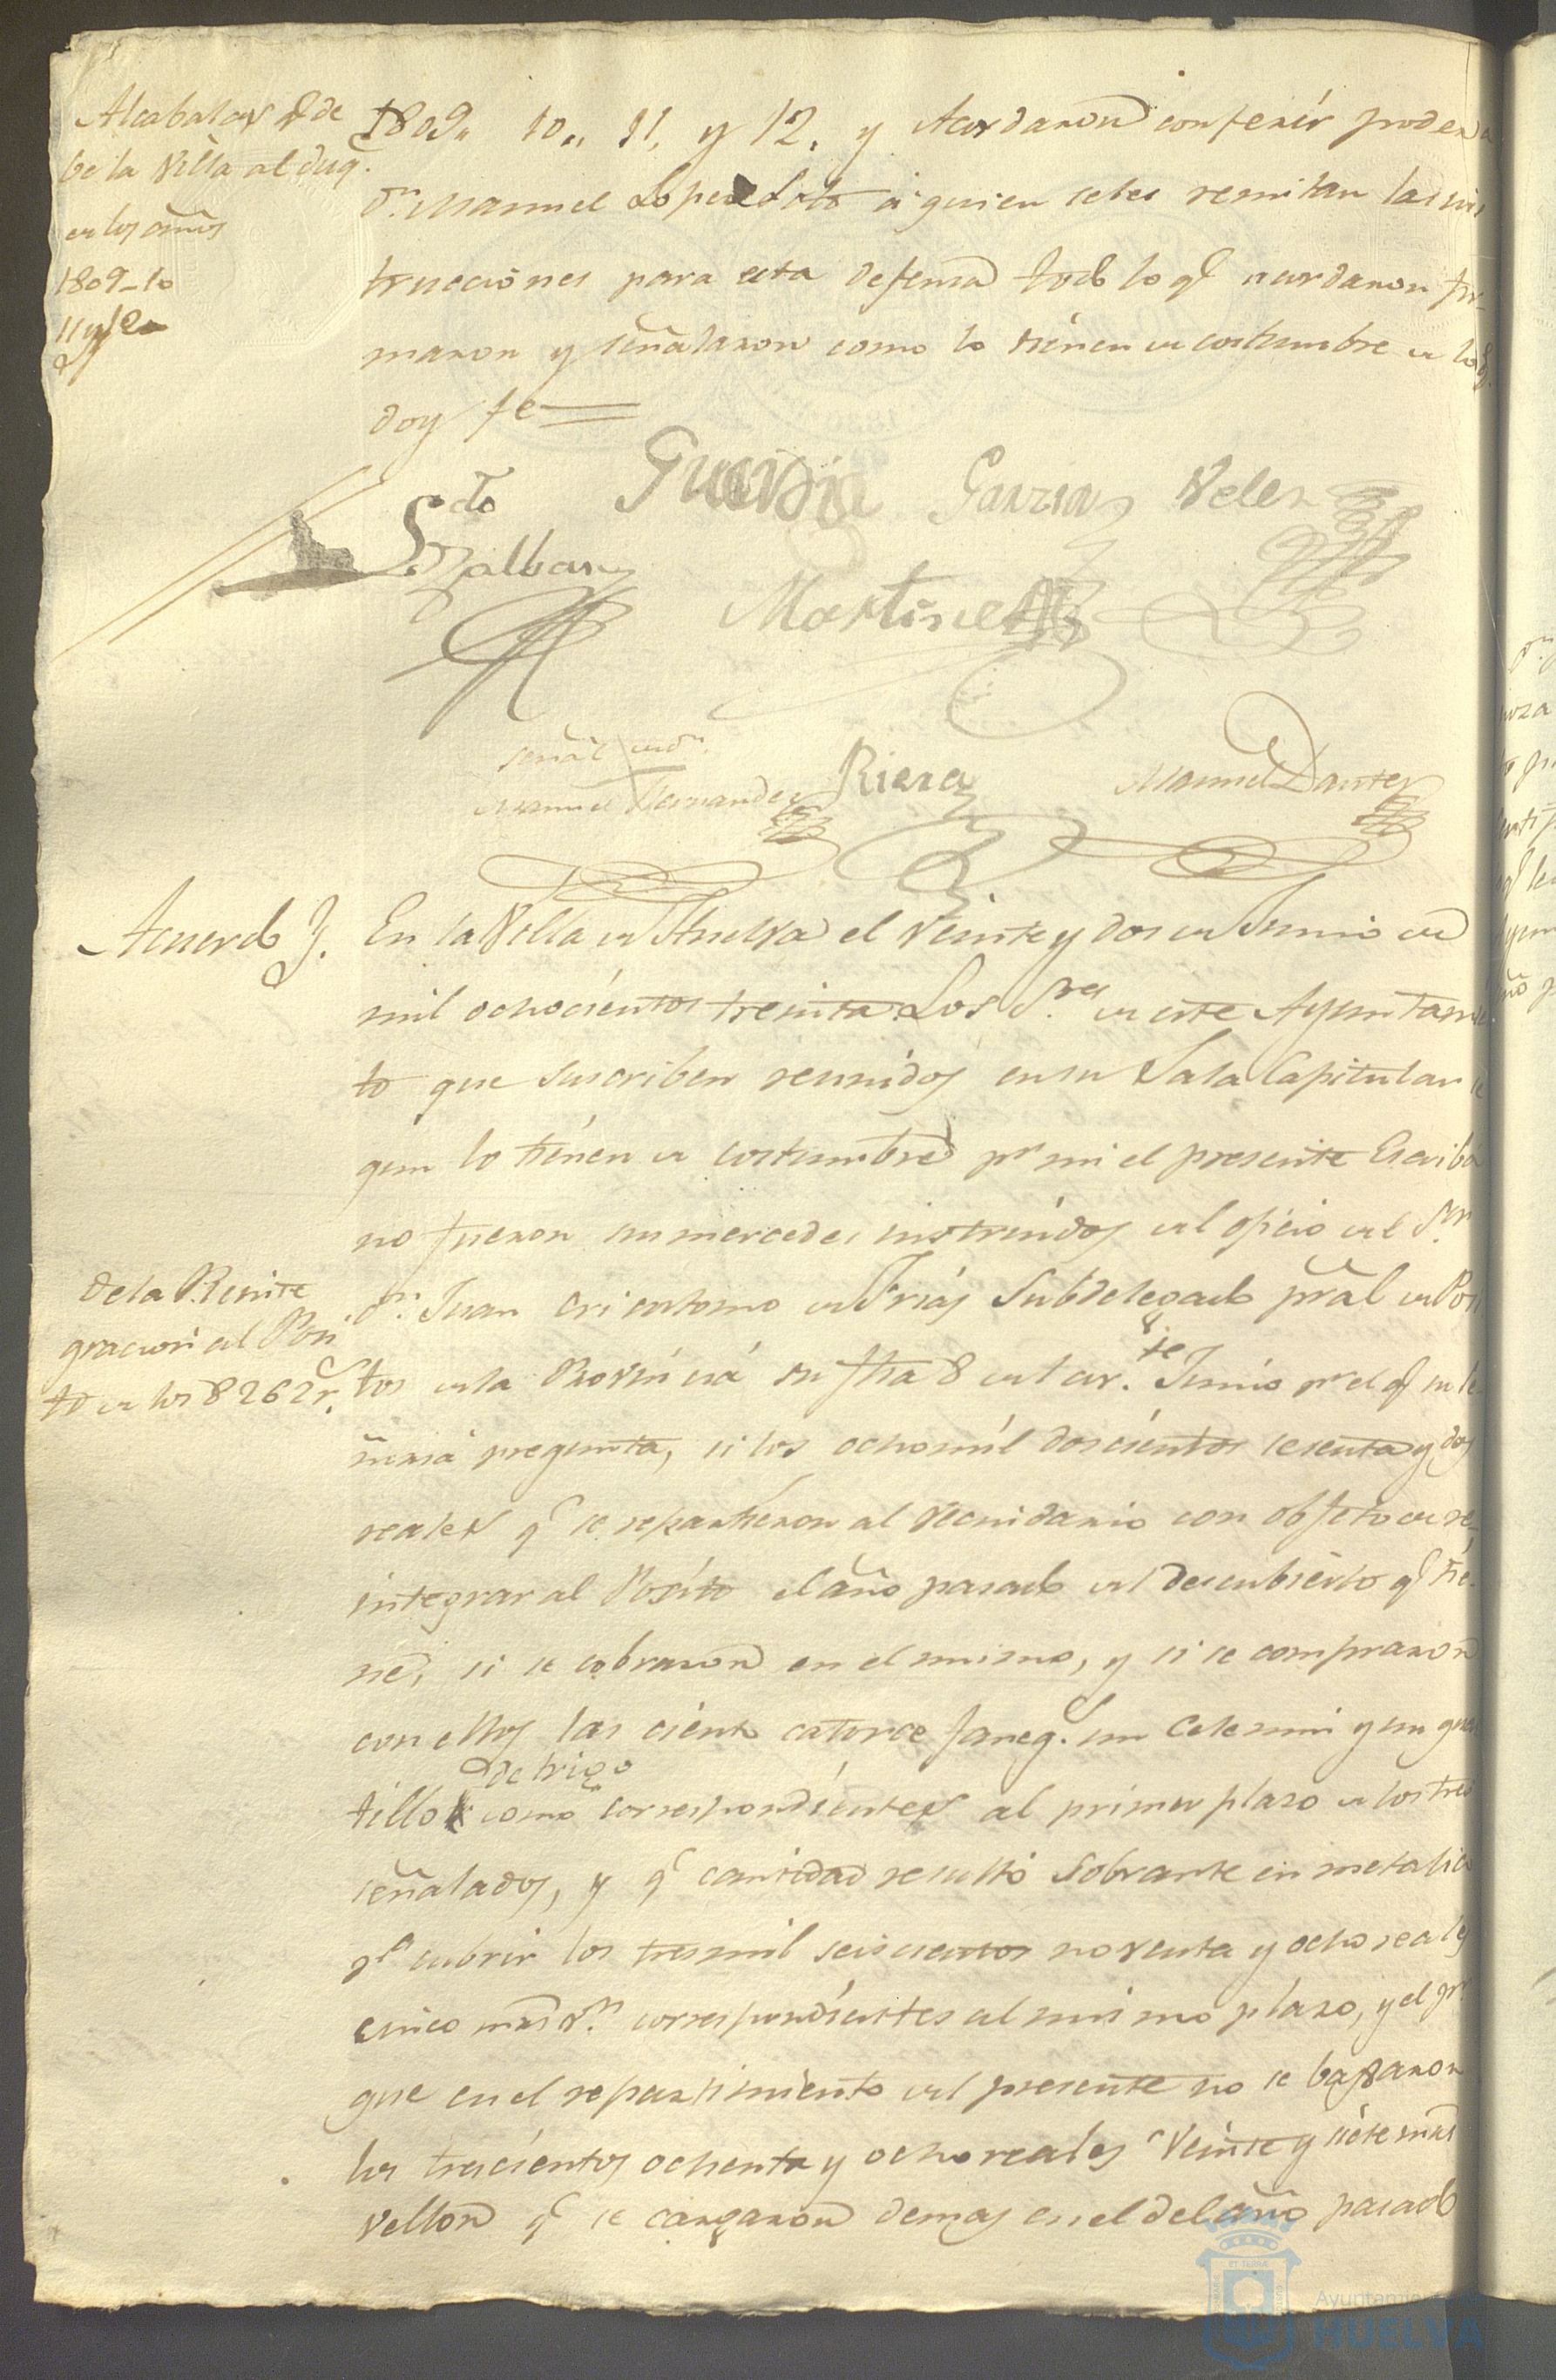 Alcabalas q.e de
be la Villa al duq.
en los años
1809-10
11 y 12
1809,, 10,, 11, y 12. y Acordaron conferír poder a
D.n Manuel Lopez Soto á quien se les remitan las ins
trucciónes para esta defensa todo lo q.e acordaron fir-
maron y señalaron como lo tiénen de costumbre de lo q.
doy fe
Guerra Garzia Velez
Sdo
Zalban
Martinez
señal de Dn.
Manuel Hernandez Riera Manuel Dantes
Acuerdo J. En la Villa de Huelva el veinte y dos de Junio de
mil ochocíentos treinta. Los S.res de este Ayuntamíe
to que suscriben reunídos en su Sala Capitular se
gun lo tiénen de costumbre p.r mi el presente Escriba
no fueron sus mercedes instruídos del oficio del S.or
D.n Juan Crisostomo de Fríaz Subdelegado prâl de Posi
de la Reinte
gracion al Posi
to de los 8262 r.
tos de la Províncía su fha 8 del cor.te Junío p.r el q.e su se
ñoria pregunta, si los ochomíl doscíentos sesenta y dos
reales q.e se repartieron al vecindario con objeto de re-
integrar al Posíto el año pasado del descubierto q.e tie
ne, si se cobraron en el mismo, y si se compraron
con ellos las ciento catorce faneg.s un Celemin y un qua
de trigo
tillo como correspondíentes al primer plazo de los tres
señalados, y q.e cantidad resultó sobrante en metalico
p.a cubrir los tresmil seiscientos noventa y ocho reales
cinco mrs v.n correspondíentes al mismo plazo, y el p.r
que en el repartimiento del presente no se bajaron
los trescíentos ochenta y ocho reales veinte y síete mrs
vellon q.e se cargaron demas en el del año pasado
Ayuntamiento de
HUELVA